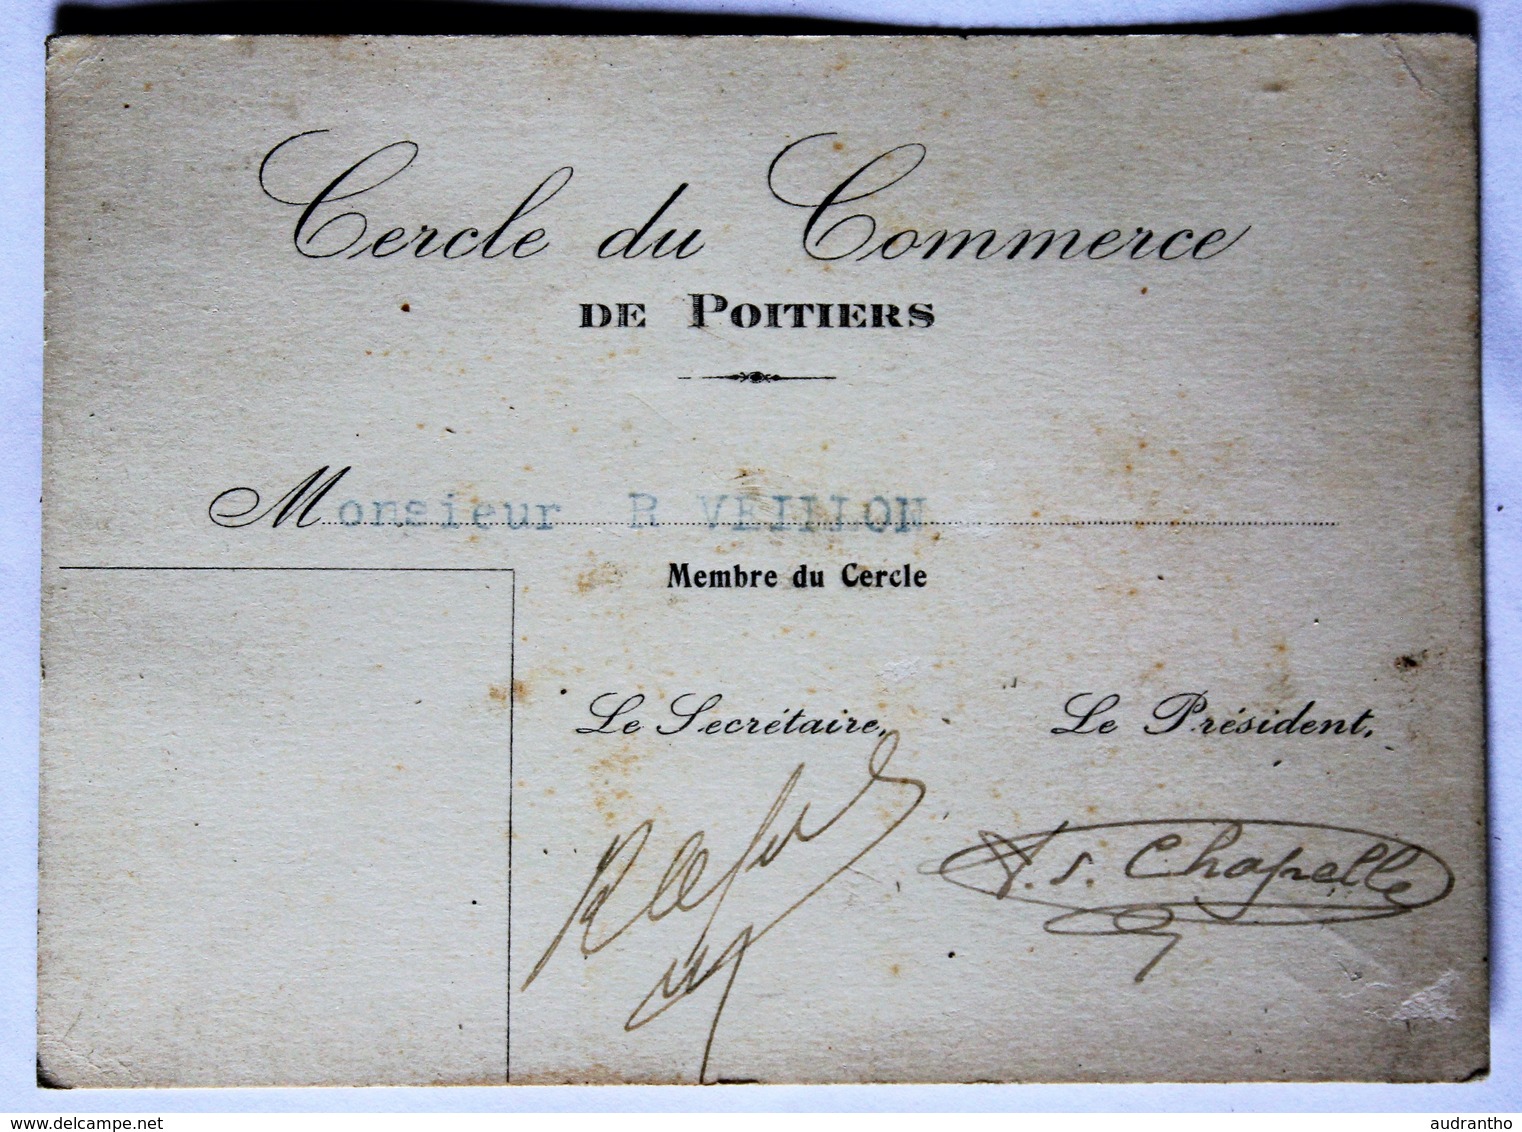 Cercle du Commerce
DE POITIERS
Monsieur R VEILLON
Membre du Cercle
Le Secrétaire, Le Président,
Chapelle
audrantho